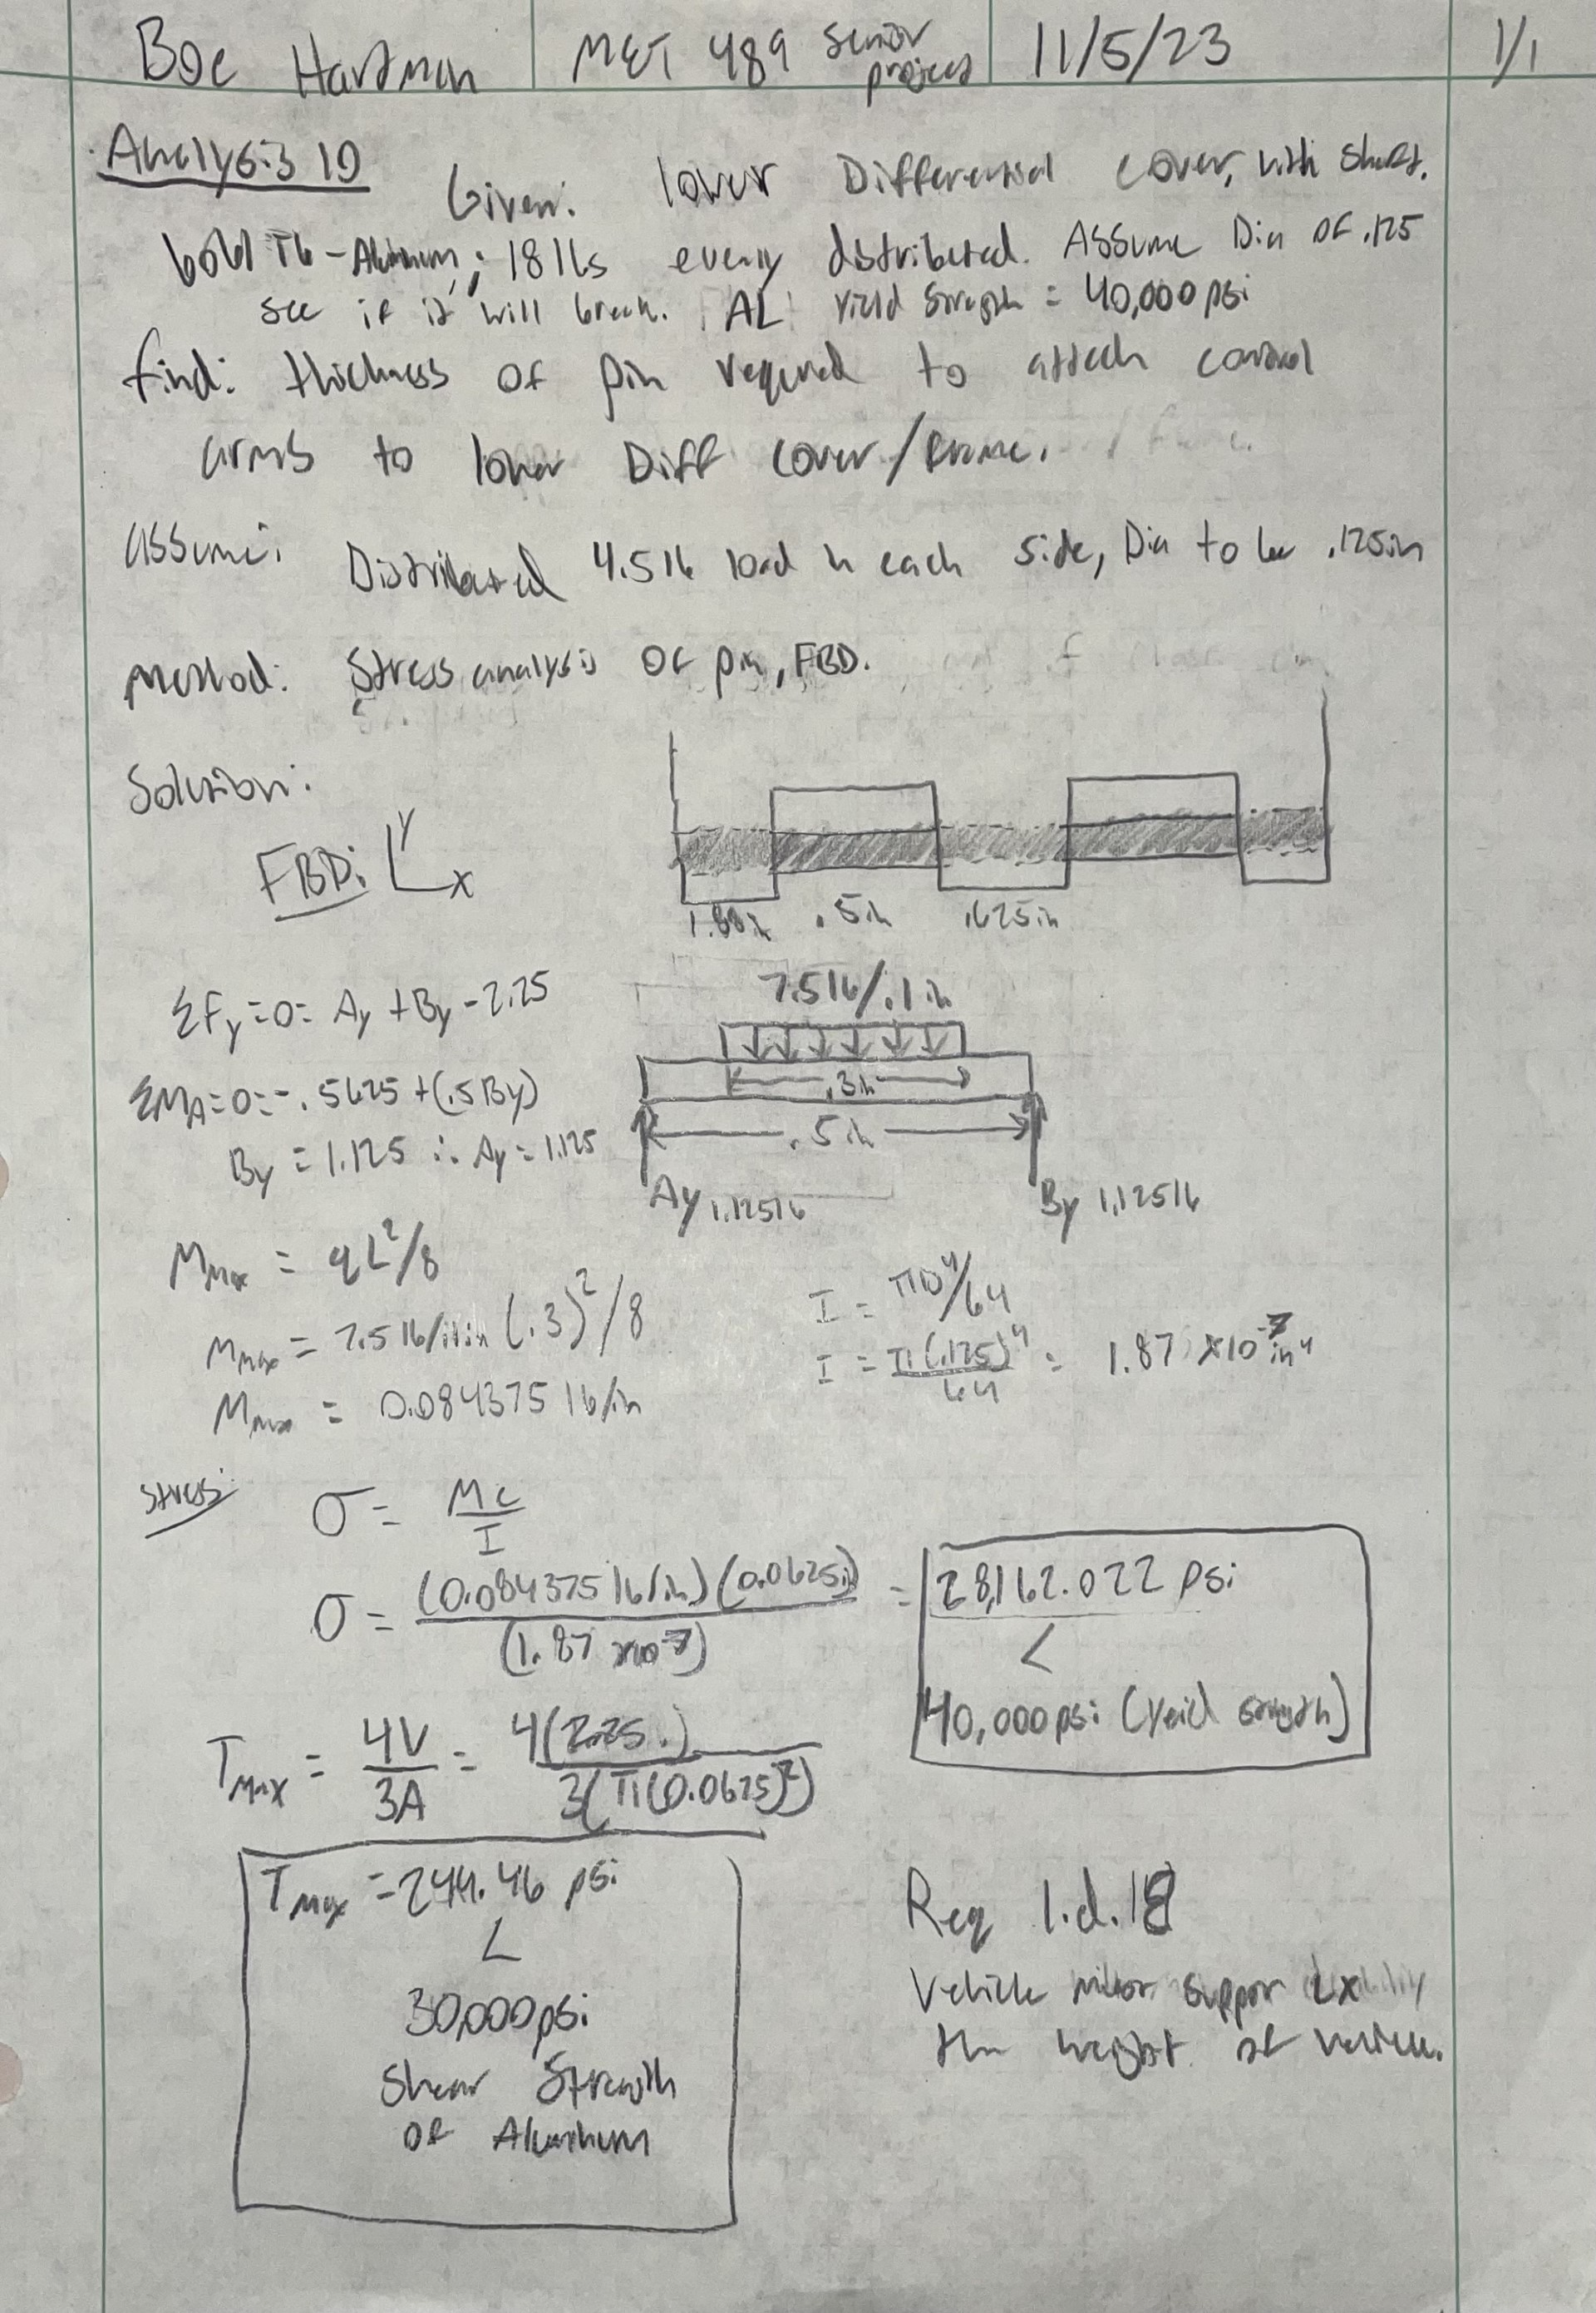 Boe Hartman MET 489 Senior project 11/5/23 1/1
Analysis 10 Given: lower Differential cover, with shaft.
6061 T6 - Aluminum; 18 lbs evenly distributed. Assume Dia of .125
see if it will break. AL Yield Strength = 40,000 psi
find: thickness of pin required to attach control
arms to lower Diff cover/frame.
Assume: Distributed 4.5 lb load in each side, Dia to be .125in
Method: Stress analysis of pin, FBD.
Solution:
FBD: Y
X
1.88in .5in .625in
7.5 lb/.1in
ΣFy=0= Ay + By - 2.25
.3in
ΣMA=0=-.5625+(.5By)
.5in
By = 1.125 ∴ Ay = 1.125
Ay 1.125lb By 1.125lb
Mmax = qL²/8
Mmax = 7.5 lb/.1in (.3)²/8
Mmax = 0.084375 lb/in
I = πD⁴/64
I = π(.125)⁴/64 = 1.87 x10⁻⁷ in⁴
stress: σ = Mc/I
σ = (0.084375 lb/in)(0.0625in)/(1.87 x10⁻⁷) = 28,162.022 psi
<
40,000psi (Yeild strength)
Tmax = 4V/3A = 4(2.25.)/3(π(0.0625)²)
Tmax = 244.46 psi
<
30,000psi
Shear Strength
OF Aluminum
Req 1.d.18
Vehicle suppor 2x
the weight of vehicle.